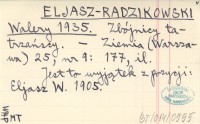 ELJASZ-RADZIKOWSKI
Walery 1935. Zbójnicy ta-
trzańscy. – Ziemia (Warsza-
wa) 25; nr 9: 177, il.
Jest to wyjątek z pozycji:
Eljasz W. 1905.
MT
BT/014/0995